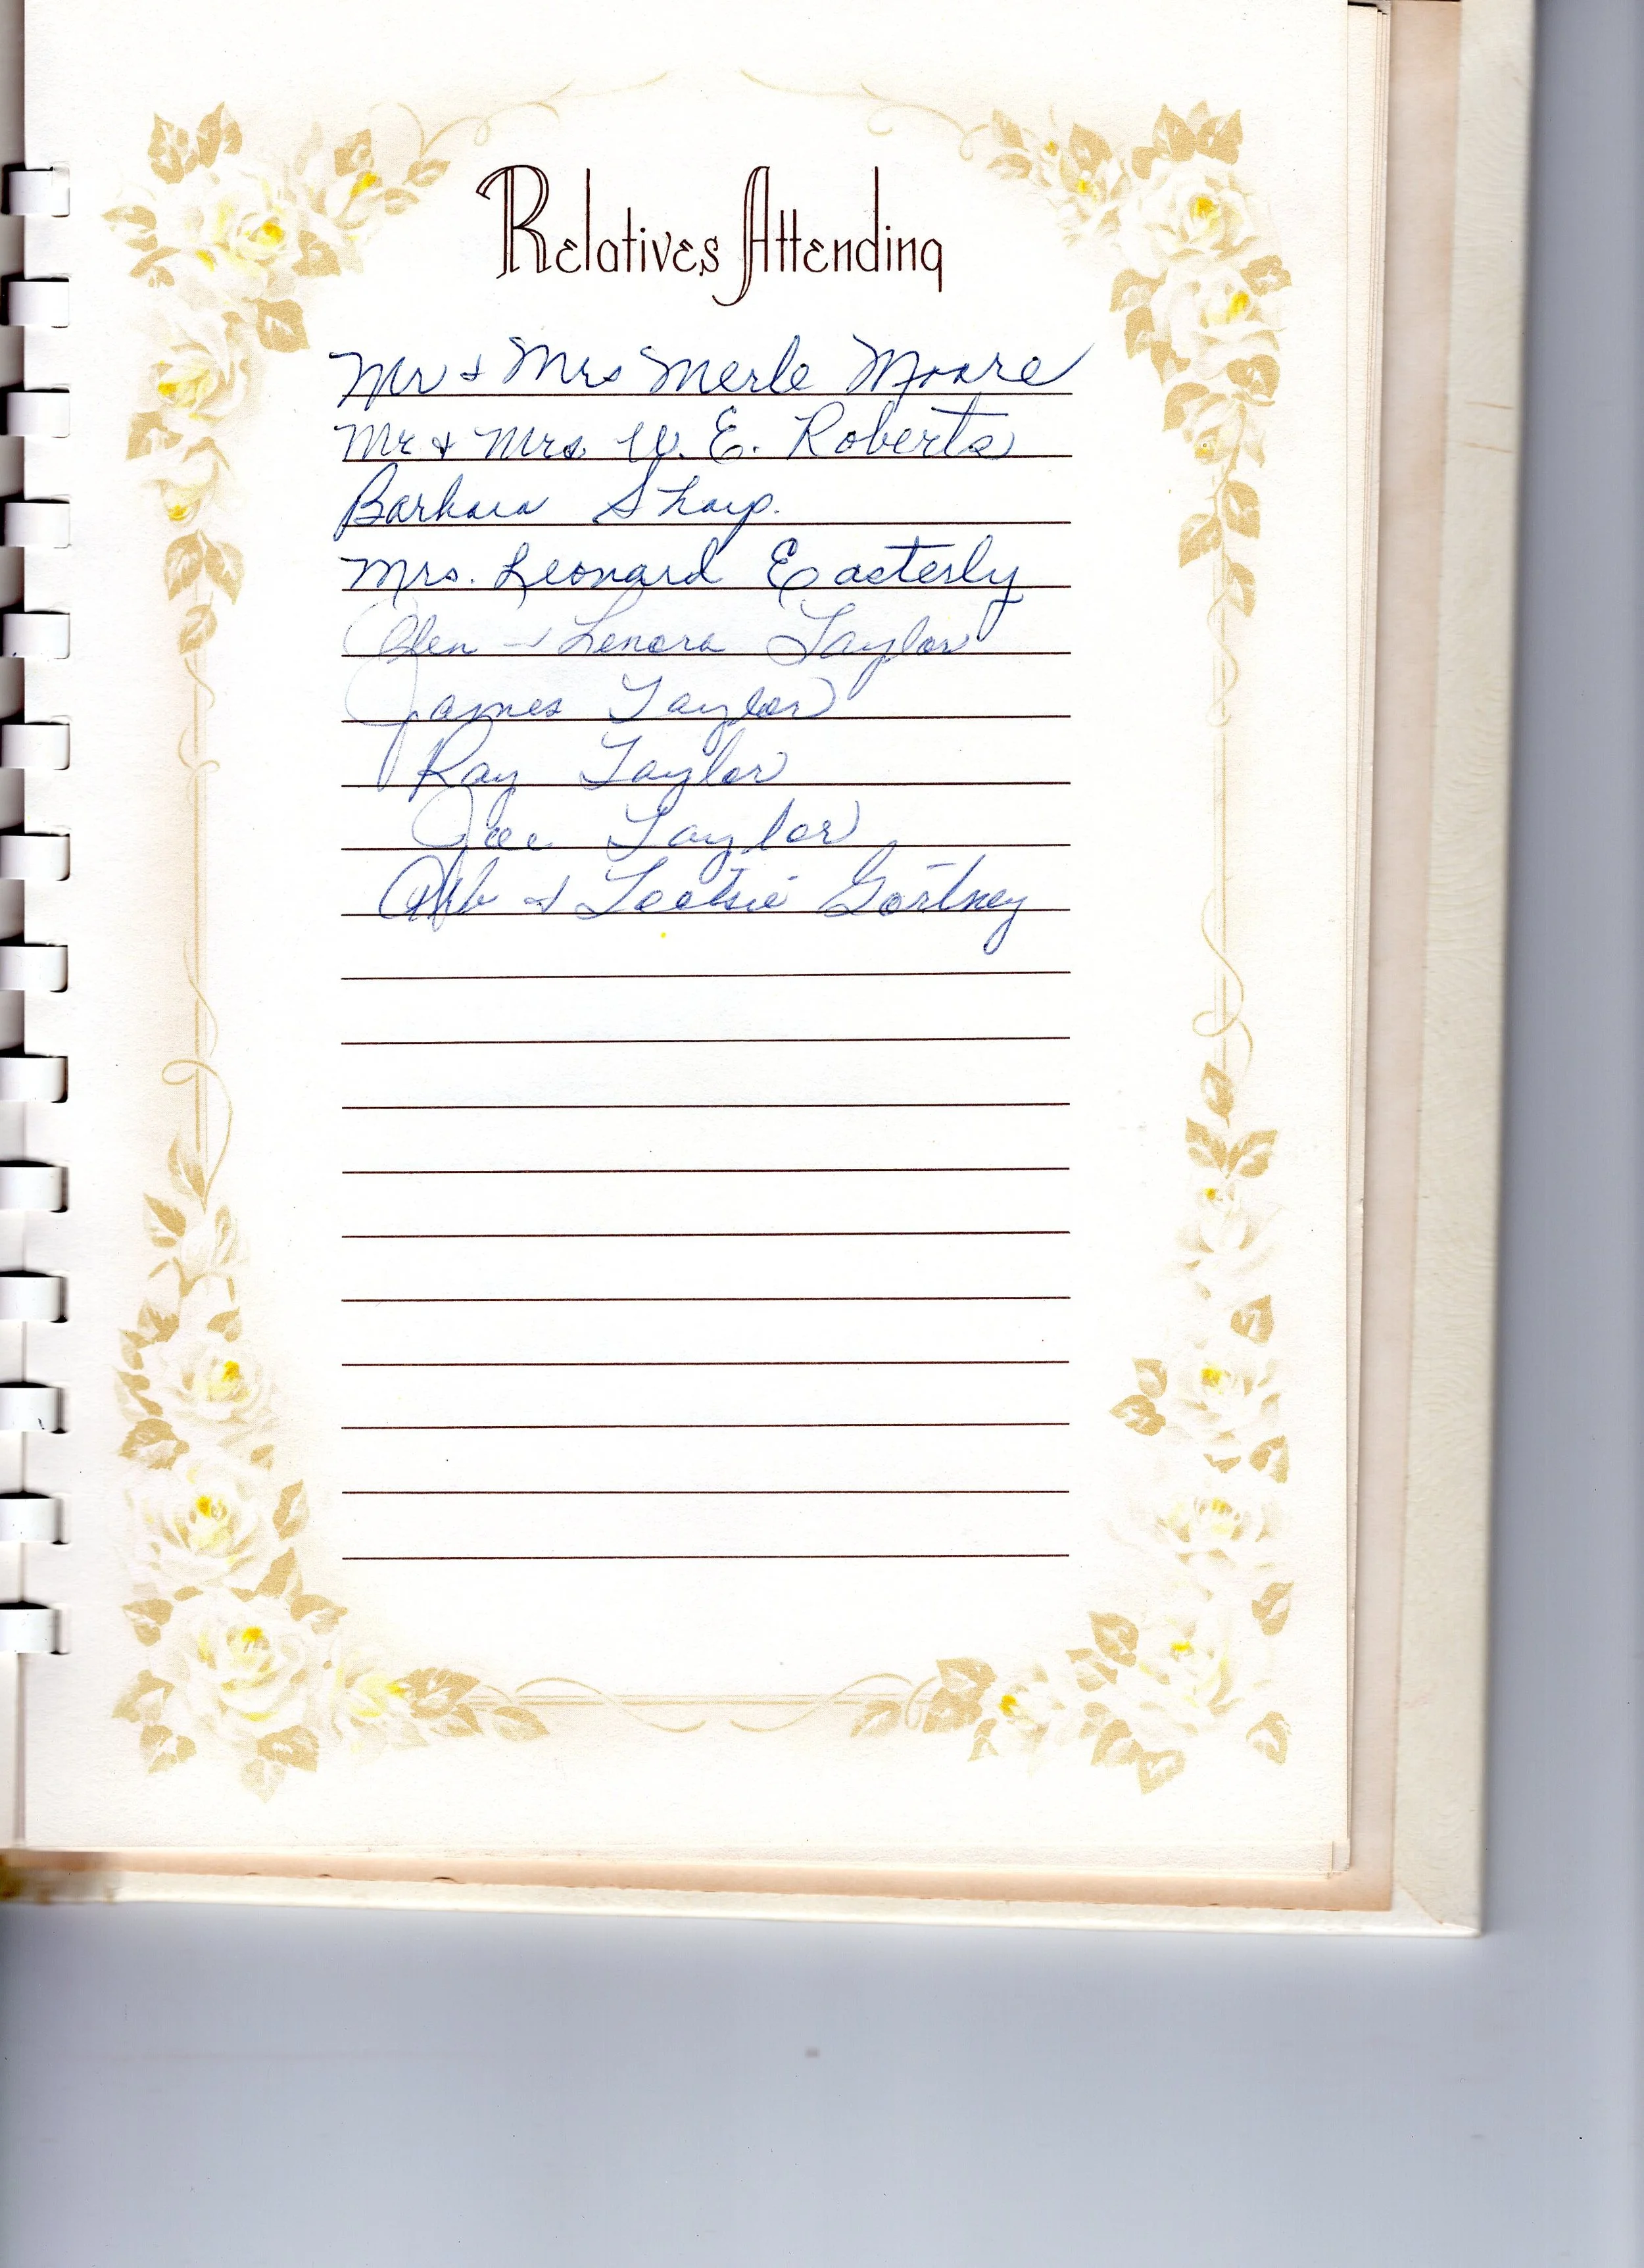 Relatives Attending
Mr & Mrs Merle Moore
Mr & Mrs. W. E. Roberts
Barbara Sharp.
Mrs. Leonard Easterly
Glen & Lenora Taylor
James Taylor
Ray Taylor
Joe Taylor
& Tootsie Gortney